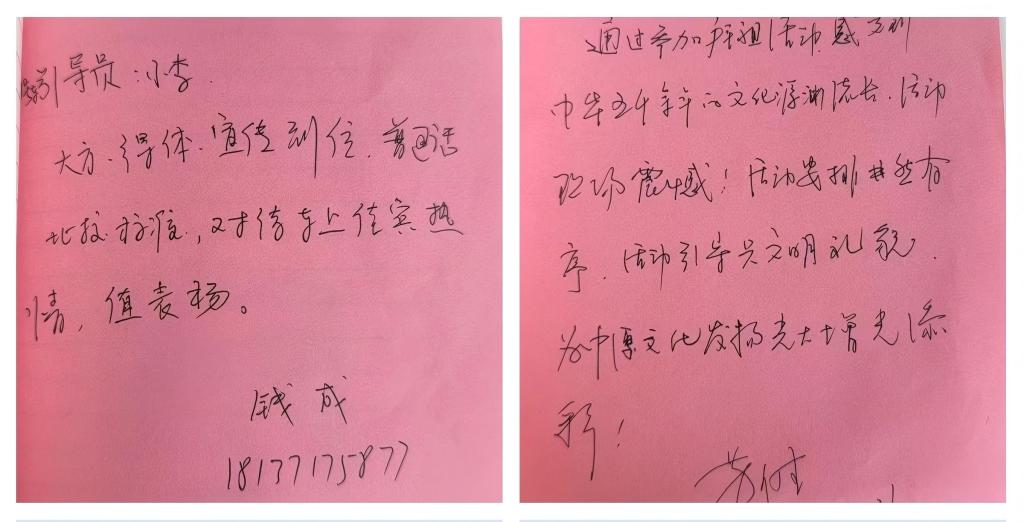 引导员:小李.
大方、得体、宣传到位、普通话
比较标准,对待车上佳宾热
情,值表杨。
钱成
18137175877
通过参加拜祖活动,感受到
中华五千余年的文化源渊流长、活动
现场震憾!活动安排井然有
序、活动引导员文明礼貌、
为中原文化发扬光大增光添
彩!